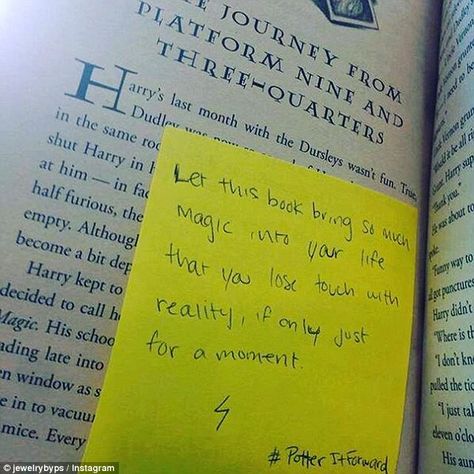 THE JOURNEY FROM
PLATFORM NINE AND
THREE-QUARTERS
Harry's last month with the Dursleys wasn't fun. True,
Dudley was now so
in the same roo
shut Harry in
at him — in fac
half furious, the
empty. Although
become a bit dep
Harry kept to
decided to call h
Magic. His schoo
ading late into
n window as s
e in to vacuu
mice. Every
Let this book bring so much
magic into your life
that you lose touch with
reality, if only just
for a moment.
# PotterItForward
Vernon grun
Would it be all ri
Harry sup
"Thank you."
He was about to
"Funny way to
got punctures
Harry didn't
"Where is th
"I don't kn
pulled the tic
"I just tal
eleven o'clo
His aun
© jewelrybyps / Instagram